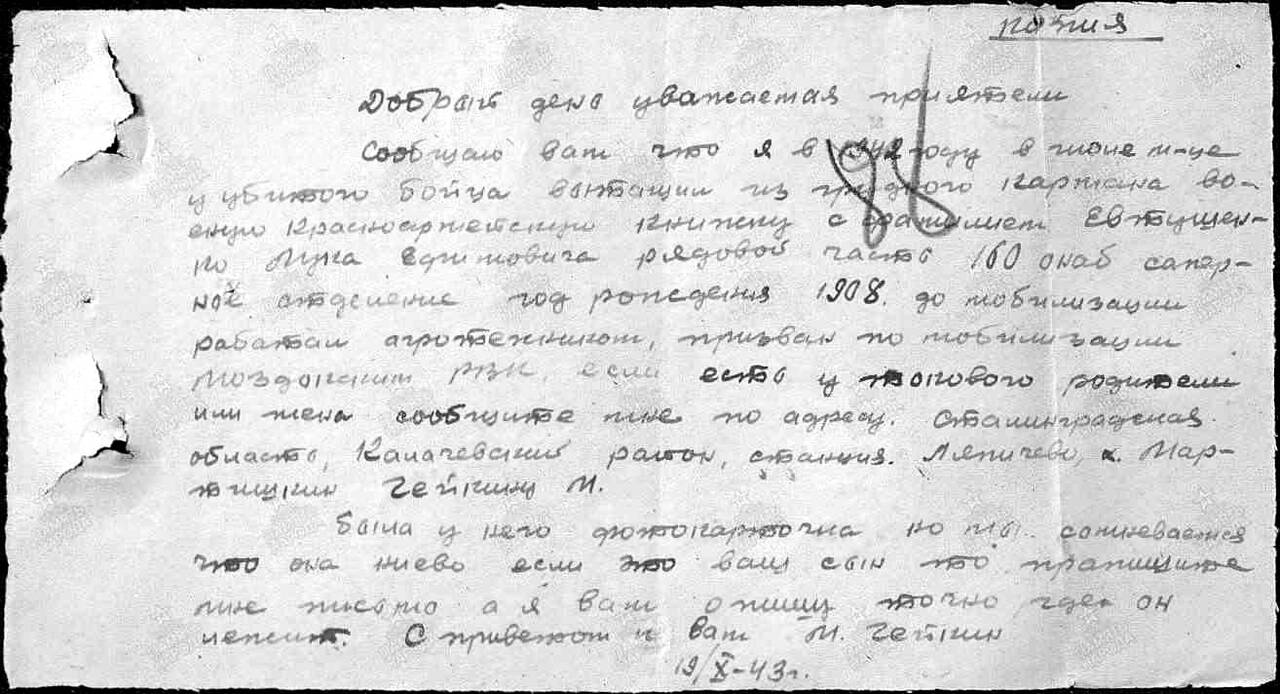 копия
Добрый день уважаемая приятели
Сообщаю вам что я в 1942 году в июне м-це
у убитого бойца вытащил из грудного кармана во-
енную Красноармейскую книжку с фамилием Евтушен-
ко Лука Ефимович рядовой часть 160 окаб сапер-
ное отделение год рождения 1908. до мобилизации
работал агротехником, призван по мобилизации
Моздокским РВК, если есть у токового родители
или жена сообщите мне по адресу. Сталинградская
область, Калачевский район, станция. Ляпичево, х. Мар-
тишкин Чейкину М.
Была у него фотокарточка но мы сомневаемся
что она ниево если это ваш сын то прапишите
мне письмо а я вам опишу точно где он
лежит. С приветом к вам М. Чейкин
19/X-43г.
98